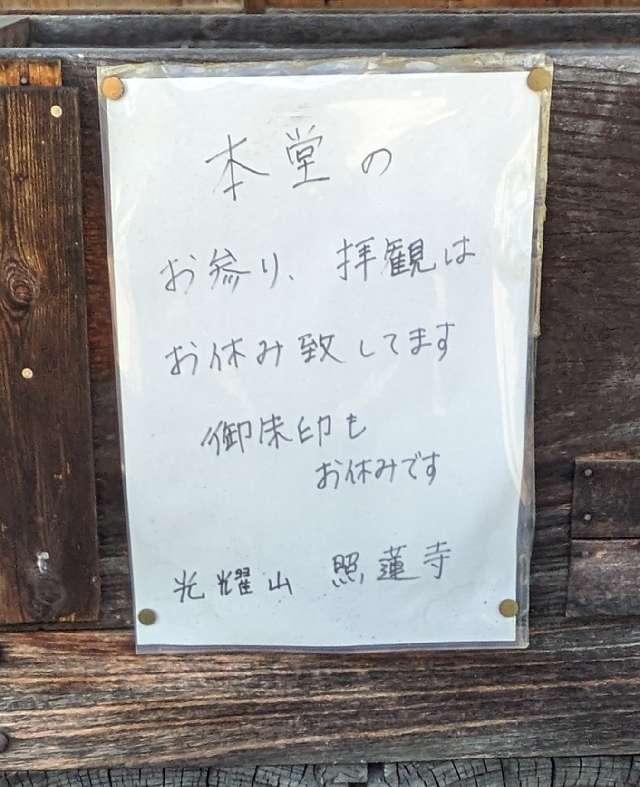 本堂の
お参り、拝観は
お休み致してます
御朱印も
お休みです
光耀山 照蓮寺